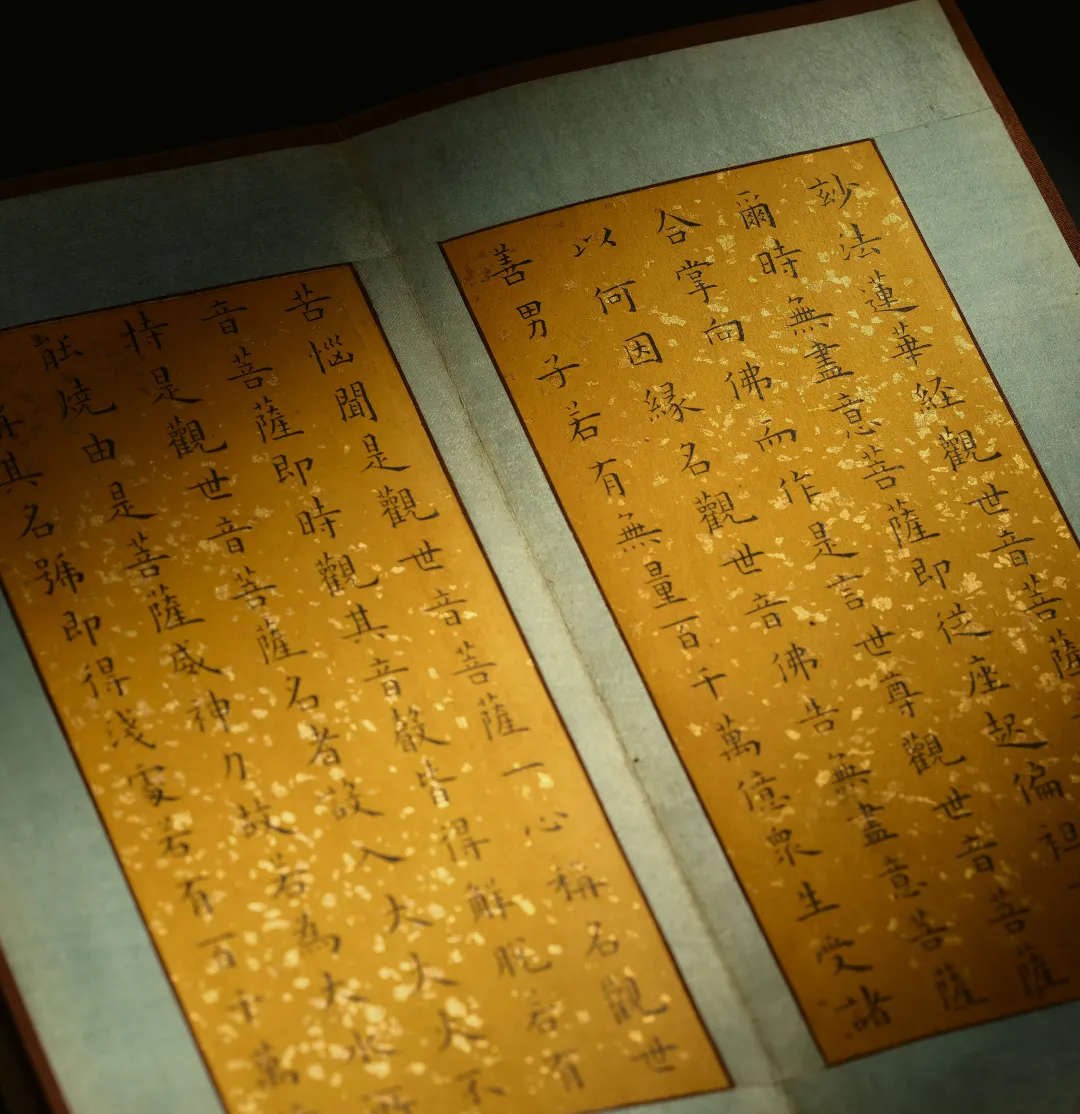 玅法蓮華経觀世音菩薩
爾時無盡意菩薩即従座起偏袒
合掌向佛而作是言世尊觀世音菩薩
以何因縁名觀世音佛告無盡意菩薩
善男子若有無量百千萬億衆生受諸
苦惱聞是觀世音菩薩一心稱名觀世
音菩薩即時觀其音聲皆得解脱若有
持是觀世音菩薩名者設入大火火不
能燒由是菩薩威神力故若為大水所
稱其名號即得淺處若有百千萬